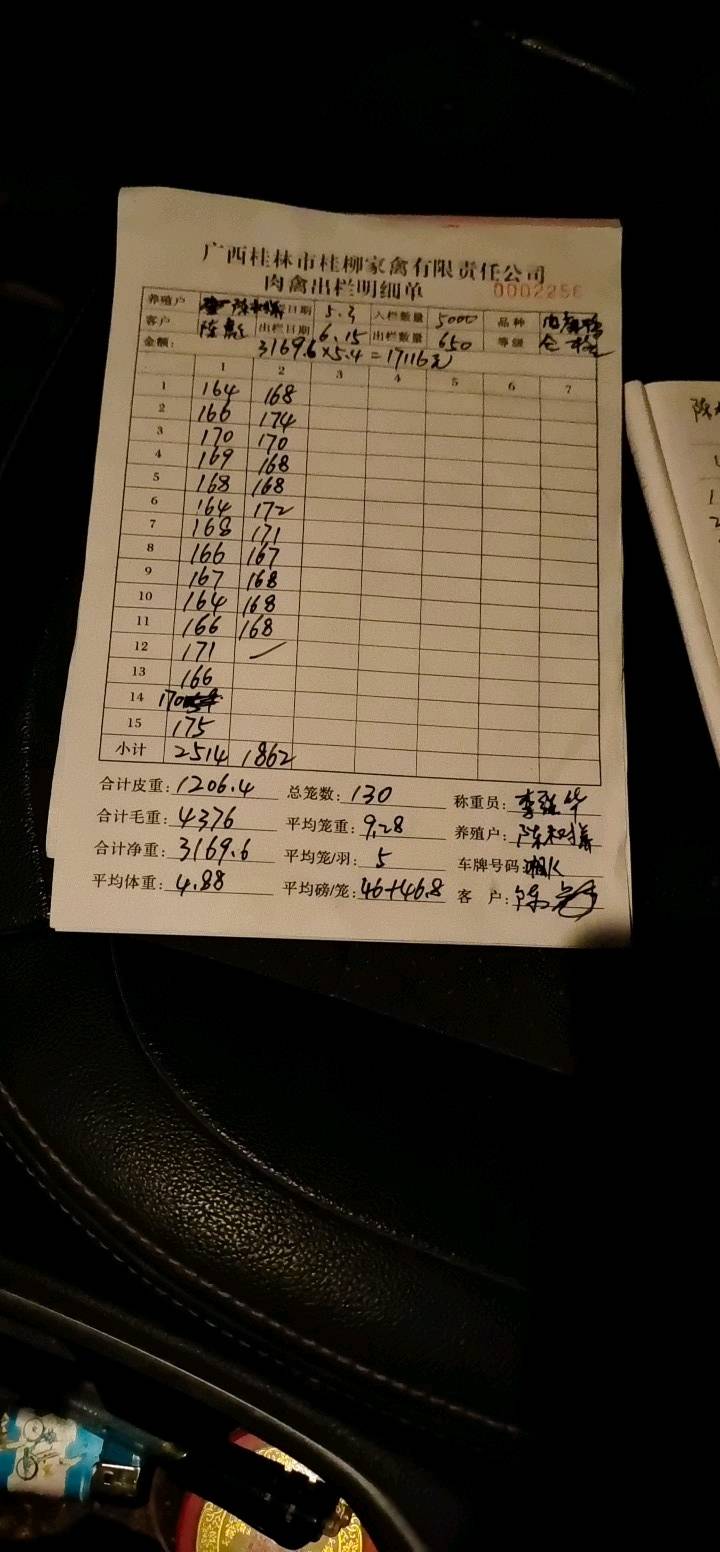 广西桂林市桂柳家禽有限责任公司
肉禽出栏明细单 0002256
养殖户 日期 5.3 入栏数量 5000 品种
客户 陈 出栏日期 6.15 出栏数量 650 等级
金额: 3169.6×5.4=17116元
1 2 3 4 5 6 7
1 164 168
2 166 174
3 170 170
4 169 168
5 168 168
6 164 172
7 168 171
8 166 167
9 167 168
10 164 168
11 166 168
12 171
13 166
14 170
15 175
小计 2514 1862
合计皮重: 1206.4 总笼数: 130 称重员: 李
合计毛重: 4376 平均笼重: 9.28 养殖户: 陈
合计净重: 3169.6 平均笼/羽: 5 车牌号码: 湘K
平均体重: 4.88 平均磅/笼: 46+46.8 客 户: 陈